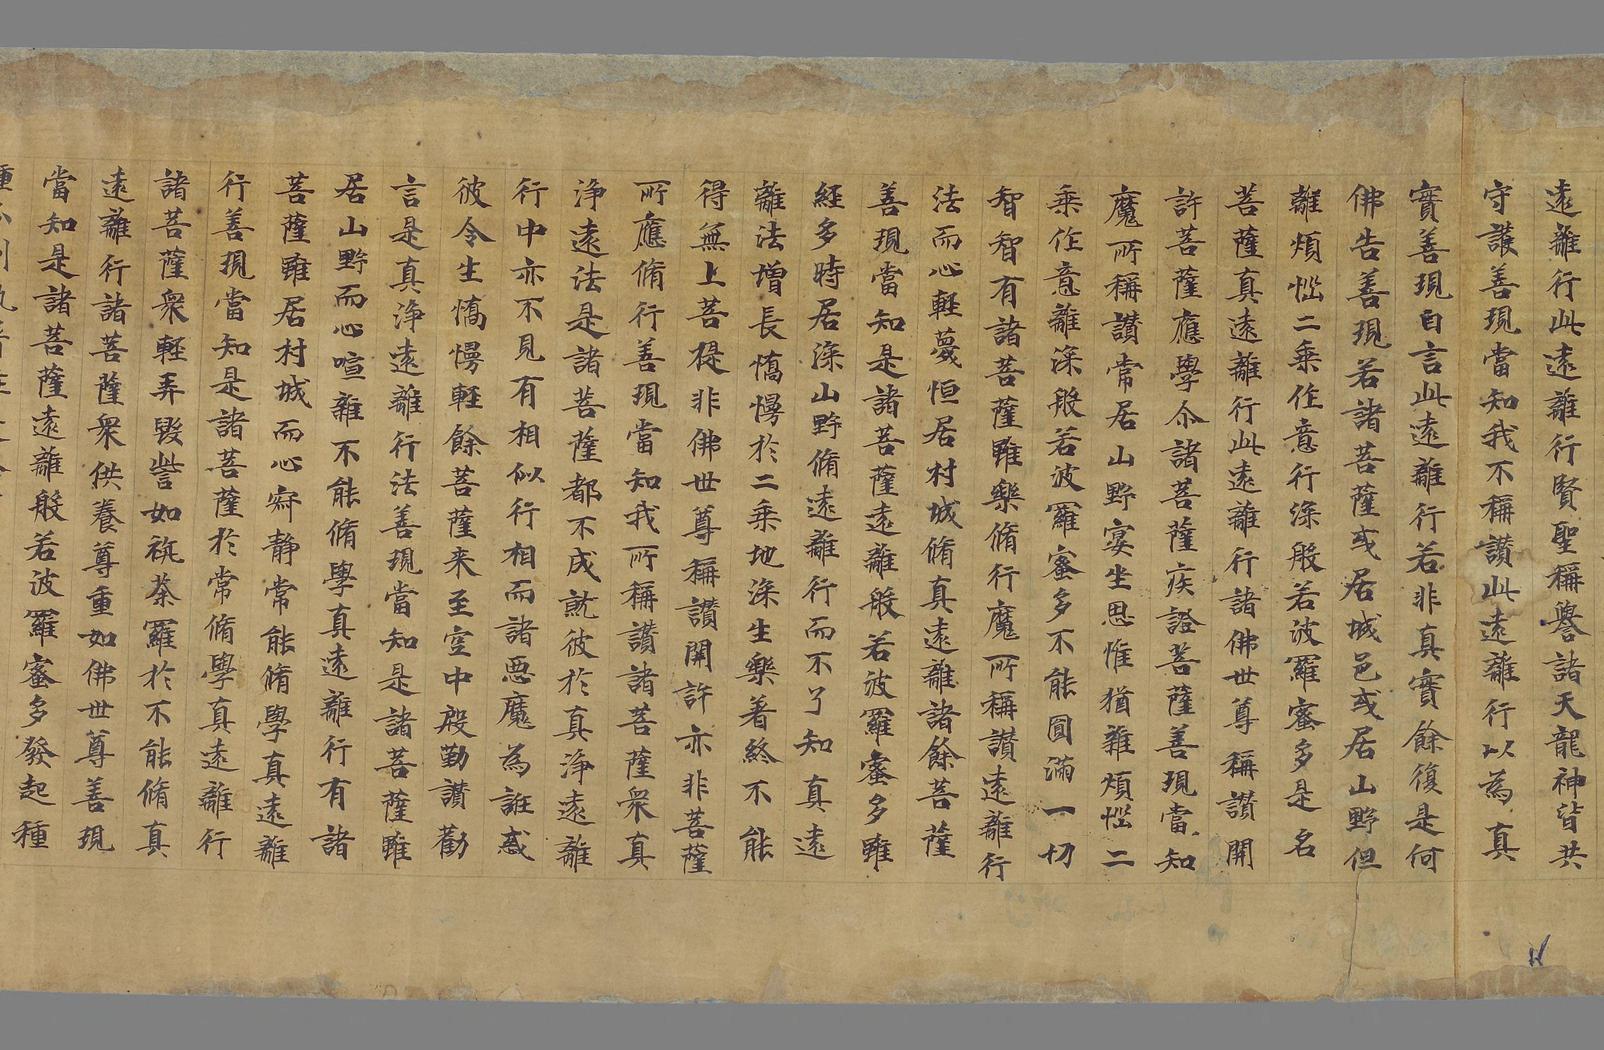 遠離行此遠離行賢聖稱譽諸天龍神皆共
守護善現當知我不稱讚此遠離行以為真
實善現白言此遠離行若非真實餘復是何
佛告善現若諸菩薩或居城邑或居山野但
離煩惱二乘作意行深般若波羅蜜多是名
菩薩真遠離行此遠離行諸佛世尊稱讚開
許菩薩應學尒諸菩薩疾證菩薩善現當知
魔所稱讚常居山野宴坐思惟猶雜煩惱二
乘作意離深般若波羅蜜多不能圓滿一切
智智有諸菩薩雖樂脩行魔所稱讚遠離行
法而心輕蔑恒居村城脩真遠離諸餘菩薩
善現當知是諸菩薩遠離般若波羅蜜多雖
經多時居深山野脩遠離行而不了知真遠
離法增長憍慢於二乘地深生樂著終不能
得無上菩提非佛世尊稱讚開許亦非菩薩
所應脩行善現當知我所稱讚諸菩薩衆真
淨遠法是諸菩薩都不成就彼於真淨遠離
行中亦不見有相似行相而諸惡魔為誑惑
彼令生憍慢輕餘菩薩来至空中殷勤讚勸
言是真淨遠離行法善現當知是諸菩薩雖
居山野而心喧雜不能脩學真遠離行有諸
菩薩雖居村城而心寂静常能脩學真遠離
行善現當知是諸菩薩於常脩學真遠離行
諸菩薩衆輕弄毀訾如旃荼羅於不能脩真
遠離行諸菩薩衆供養尊重如佛世尊善現
當知是諸菩薩遠離般若波羅蜜多發起種